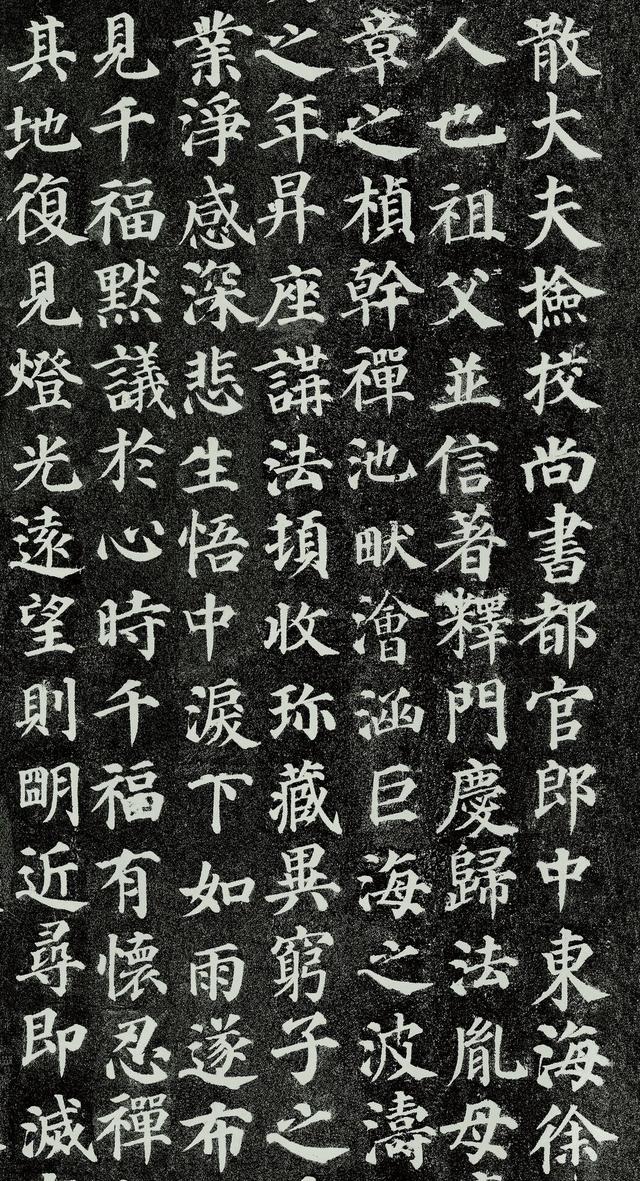 散大夫撿挍尚書都官郎中東海徐
人也祖父並信著釋門慶歸法胤母
章之楨幹禪池畎澮涵巨海之波濤
之年昇座講法頓收珎藏異窮子之
業淨感深悲生悟中淚下如雨遂布
見千福默議於心時千福有懷忍禪
其地復見燈光遠望則明近尋即滅